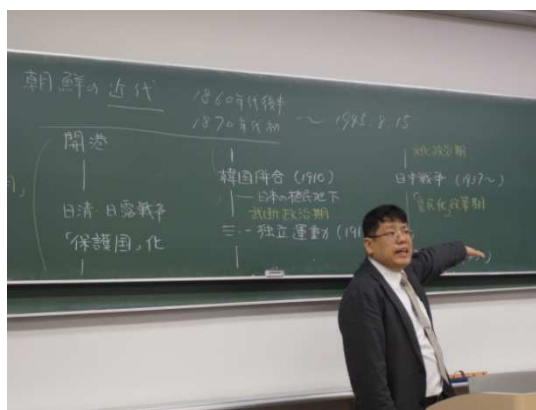 朝鮮の近代
1860年代後半
1870年代初 〜 1945.8.15
開港
日清・日露戦争
「保護国」化
韓国併合(1910)
日本の植民地下
武断政治期
三・一独立運動(191
文化政治期
日中戦争(1937〜)
「皇民化」政策期